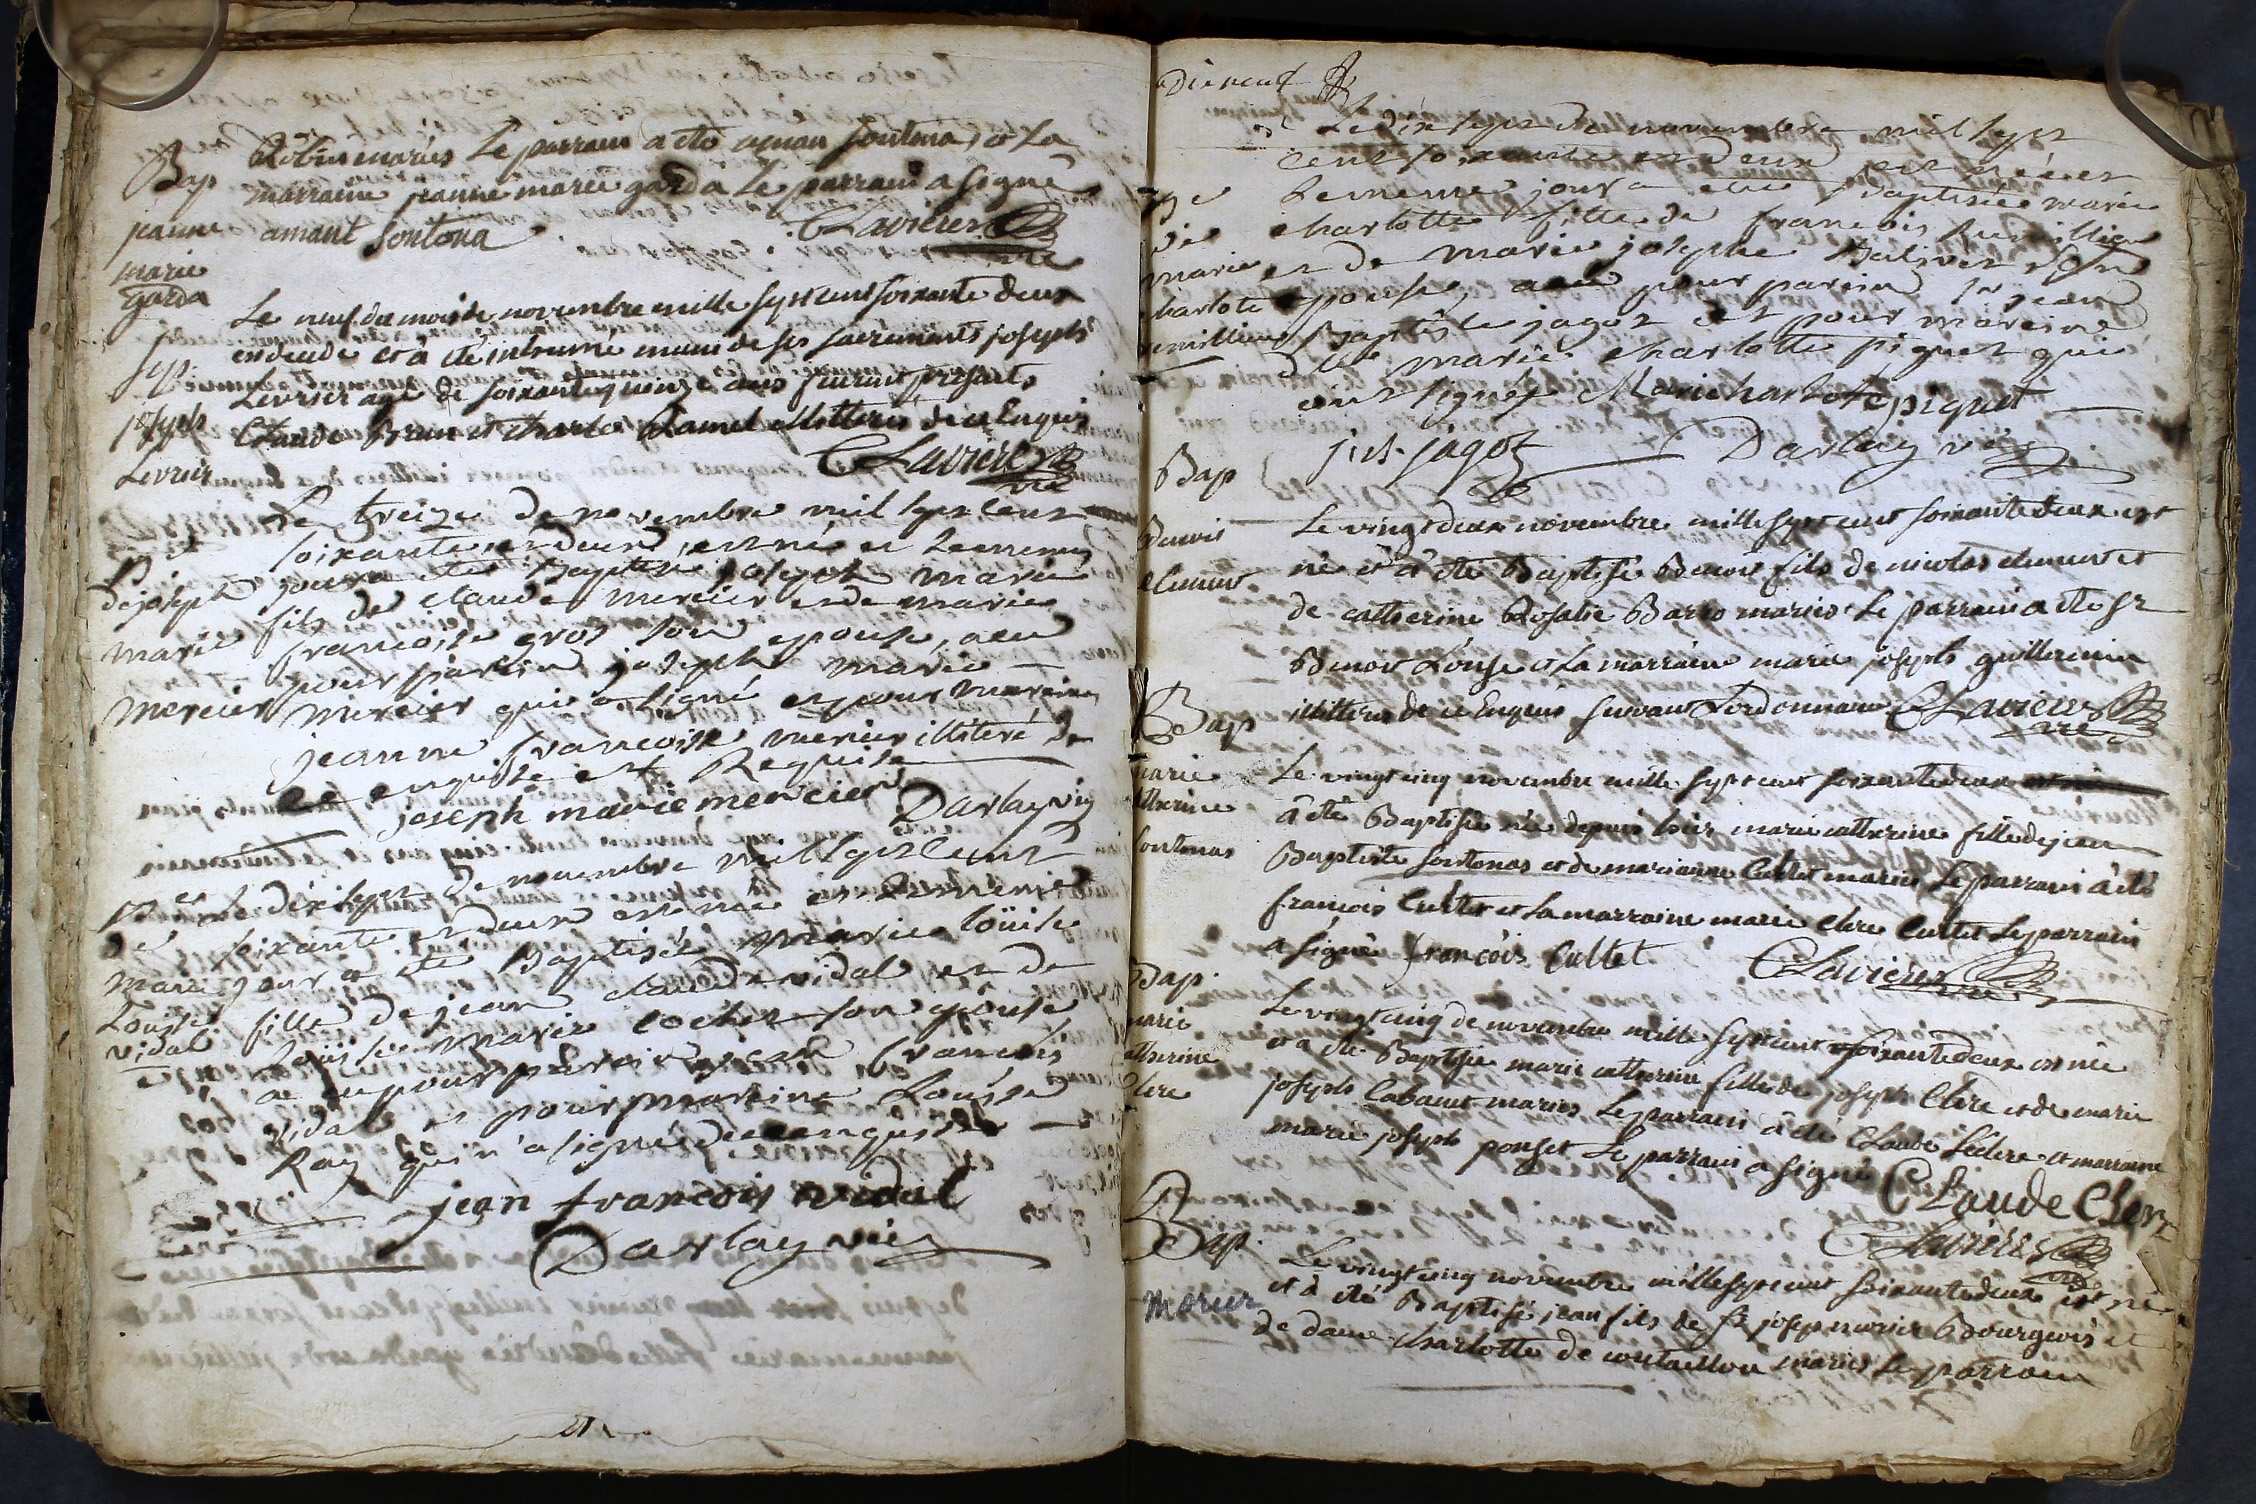 Robin mariés Le parrain a été aman fontona, et La
Bap
marraine jeanne marie garda Le parrain a signé
jeanne
amant fontona
CLaviere
vic
marie
garda
Le neuf du mois de novembre mille sept cent soixante deux
est decedé et à été inhumé muni de ses sacrements joseph
Sep.
Levrier agé de soixante quinze ans furent presents
joseph
Claude Brun et Charle illitteres de ce Enquis
Levrier
CLaviere
vic
Le treize de novembre mil sept cent
soixante et deux est né et le meme
Be
de joseph
jour a eté Baptisé joseph marie
fils de claude mercier et de marie
marie
francoise gros son epouse, a eu
pour parain joseph marie
mercier
mercier qui a signé et pour maraine
jeanne francoise mercier illiteré de
ce enquise et Requise
joseph marie mercier
Darlay vic
Le dix sept de novembre mil sept cent
Be
de
soixante et deux est née et le meme
marie
jour a eté Baptisée marie loüise
Loüise
fille de jean claude vidal et de
vidal
loüise marie cochet son epouse
a eu pour parain jean francois
vidal et pour maraine Loüise
Ray qui n'a signé de ce enquise
jean francois vidal
Darlay vic
Le dix sept de novembre mil sept
cent soixante et deux est née et
Be
le meme jour a eté Baptisée marie
de
charlotte fille de francois
marie
et de marie josephe son
charlote
epouse, a eu pour parain Sr jean
Baptiste jagot et pour maraine
dlle marie charlotte piguet qui
ont signé Marie charlote piguet
j. b. jagot
Darlay vic
Bap
Le vingt deux novembre mille sept cent soixante deux est
Benoit
né et à été Baptisé Benoit fils de nicolas clement et
clement
de catherine Rosalie Barro mariés Le parrain a été Sr
Benoit et La marraine marie joseph guillermin
illitteres de ce Enquis suivant L'ordonnance CLaviere
vic
Bap
Le vingt cinq novembre mille sept cent soixante deux
marie
à été Baptisée née depuis hier marie catherine fille de jean
catherine
Baptiste fontonas et de marianne Cultet mariés Le parrain à été
fontonas
francois Cultet et La marraine marie Clere Cultet Le parrain
a signé francois Cultet
CLaviere
vic
Bap
Le vingt cinq de novembre mille sept cent soixante deux est née
marie
et a été Baptisée marie catherine fille de joseph Clere et de marie
catherine
joseph Cabanet mariés Le parrain à été Claude Leclere et marraine
Clere
marie joseph ponset Le parrain a signé Claude Clerc
CLaviere
vic
Bap
Le vingt cinq novembre mille sept cent soixante deux est né
et à été Baptisé jean fils de Sr josep morier Bourgeois et
morier
de dame charlotte de mariés Le parrain